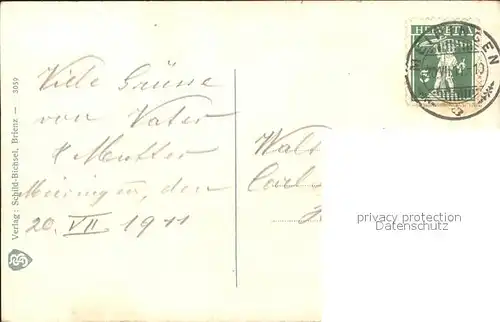 HELVETIA
5
Viele Grüsse
von Vater
& Mutter
Meiringen, den
20. VII 1911
Walt
Carl
Verlag: Schild-Bichsel, Brienz — 3059
privacy protection
Datenschutz